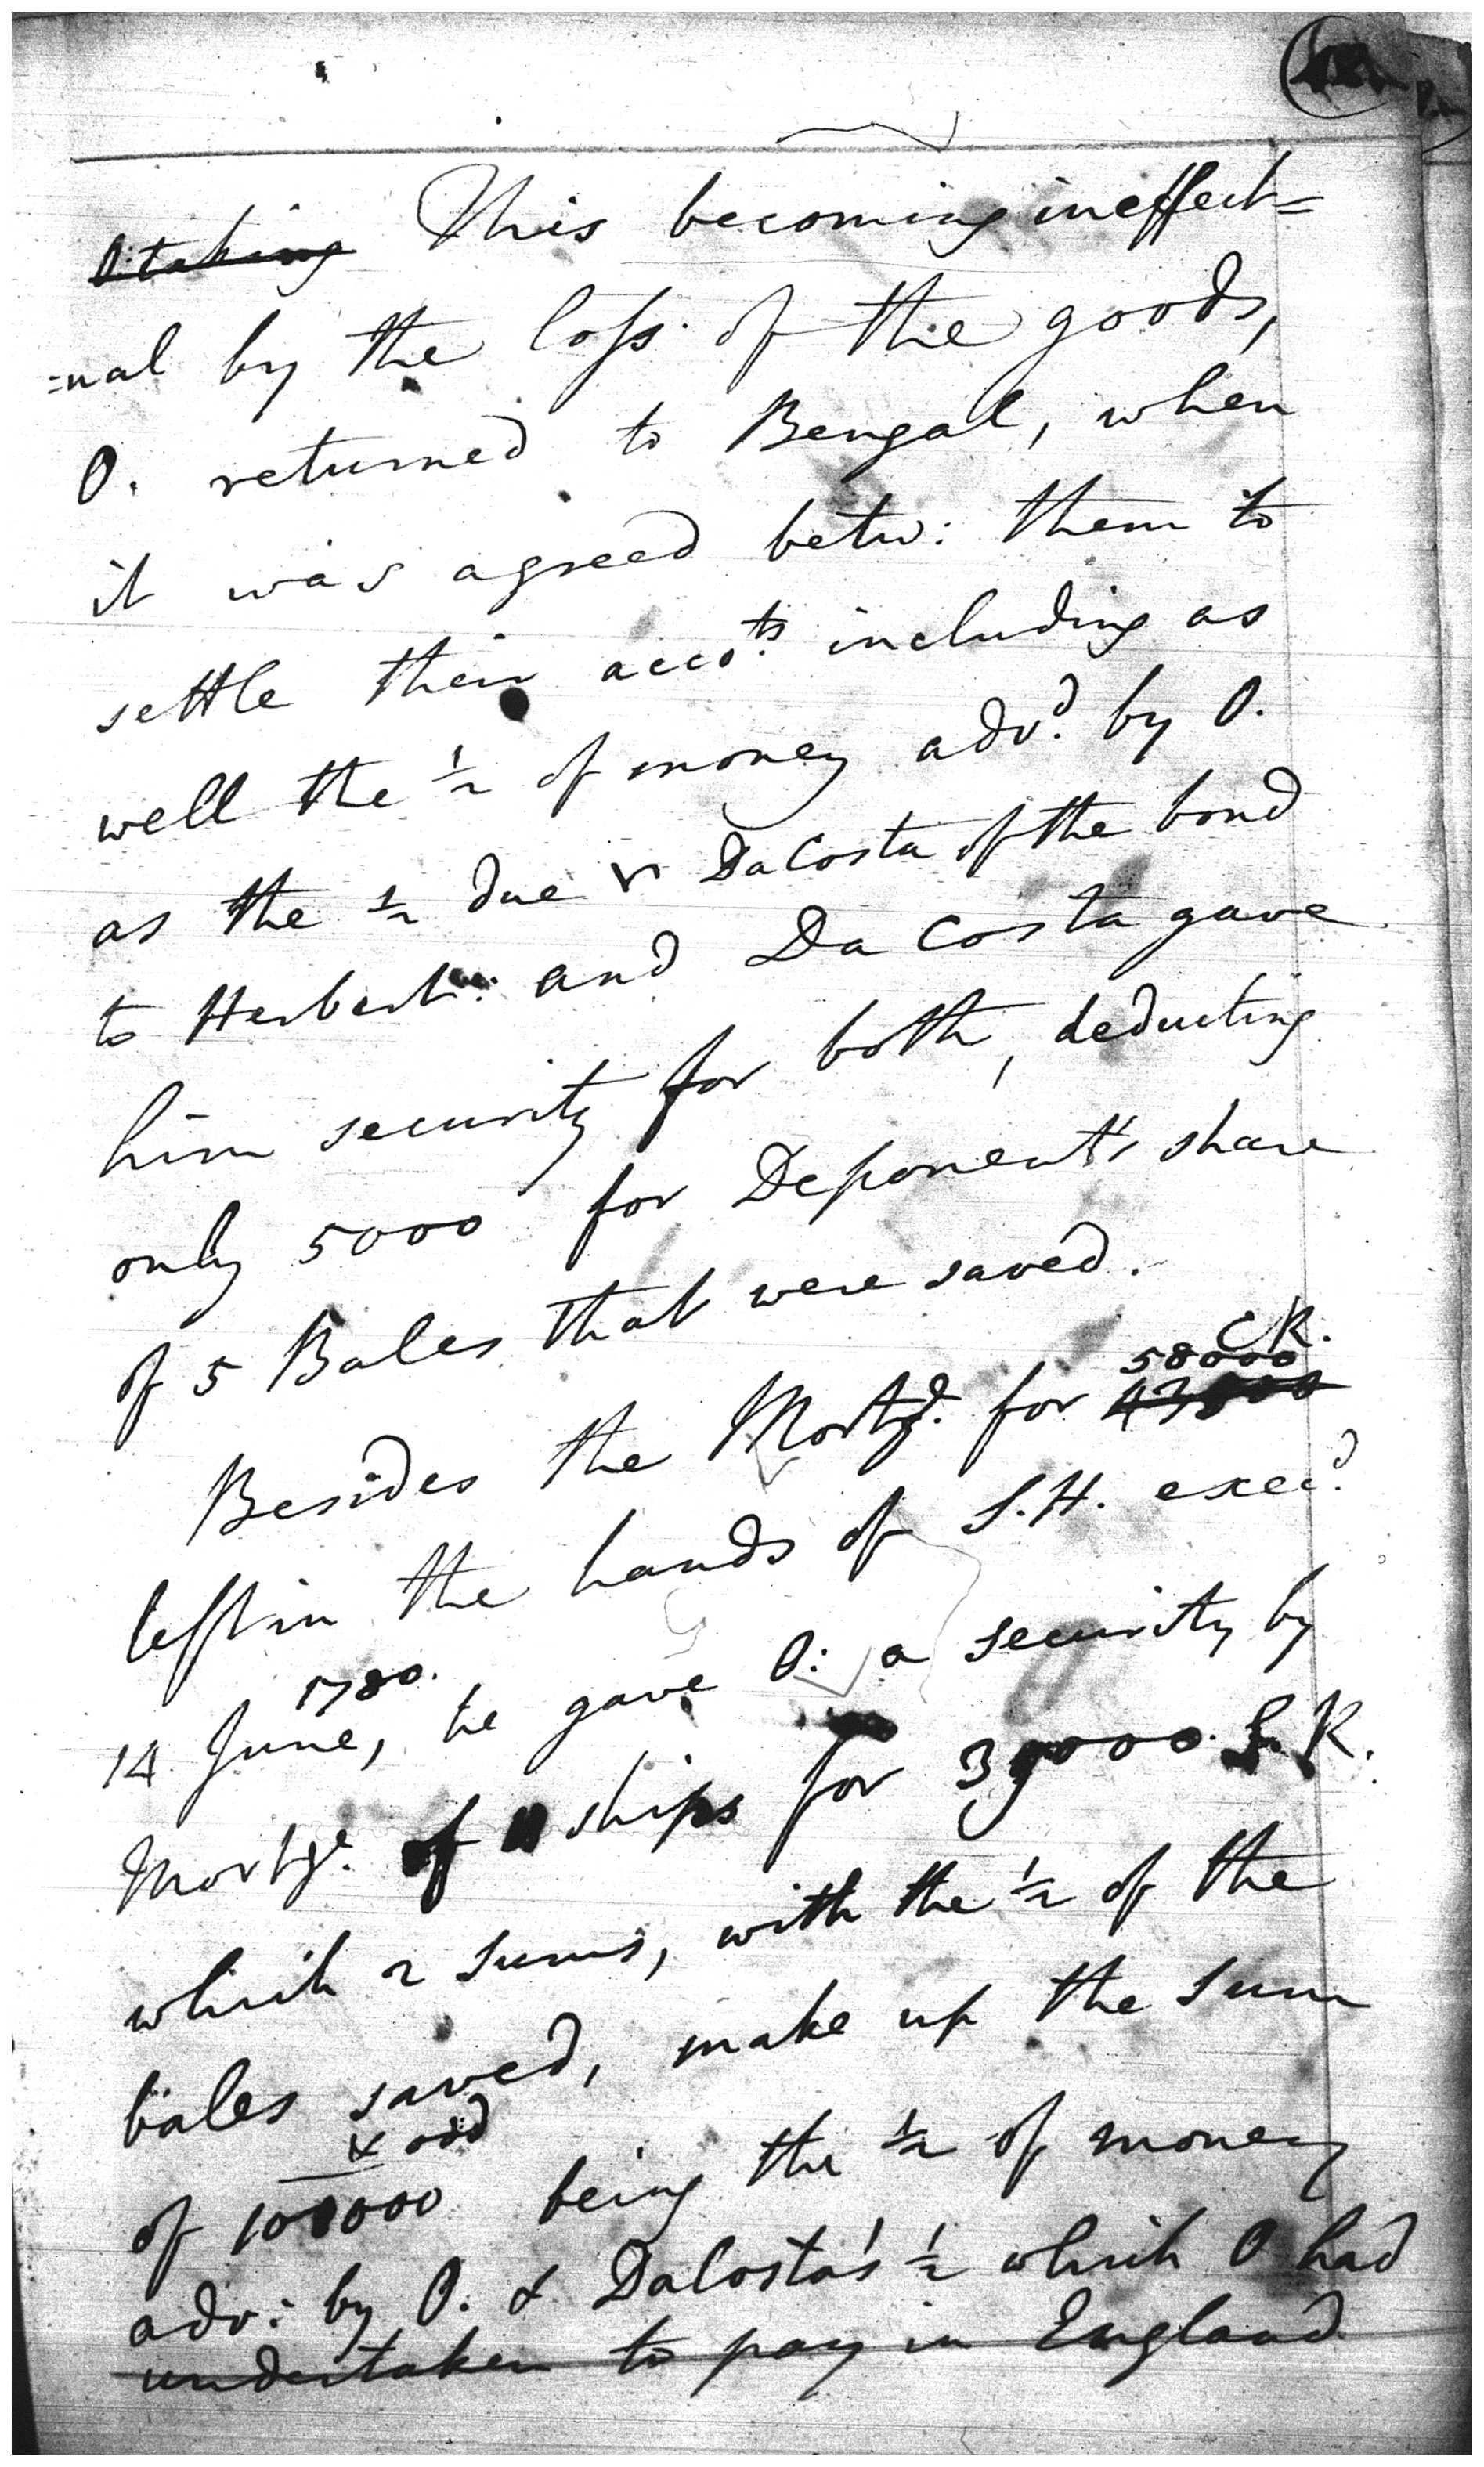 O: taking This becoming ineffect=
=ual by the loss of the goods,
O. returned to Bengal, when
it was agreed betw: them to
settle their acco.ts including as
well the ½ of money adv.d by O.
as the ½ due DaCosta of the bond
to Herbert: and Da Costa gave
him security for both, deducting
only 5000 for Deponent's share
of 5 Bales that were saved.
C R.
58000
Besides the Mortg.e for
left in the hands of S.H. exec.d
1780.
14 June, he gave O: a security by
Mortge. of ships for 39000. S. R.
which 2 sums, with the ½ of the
bales saved, make up the sum
& odd
of 100000 being the ½ of money
adv: by O. & DaCosta's ½ which O had
undertaken to pay in England